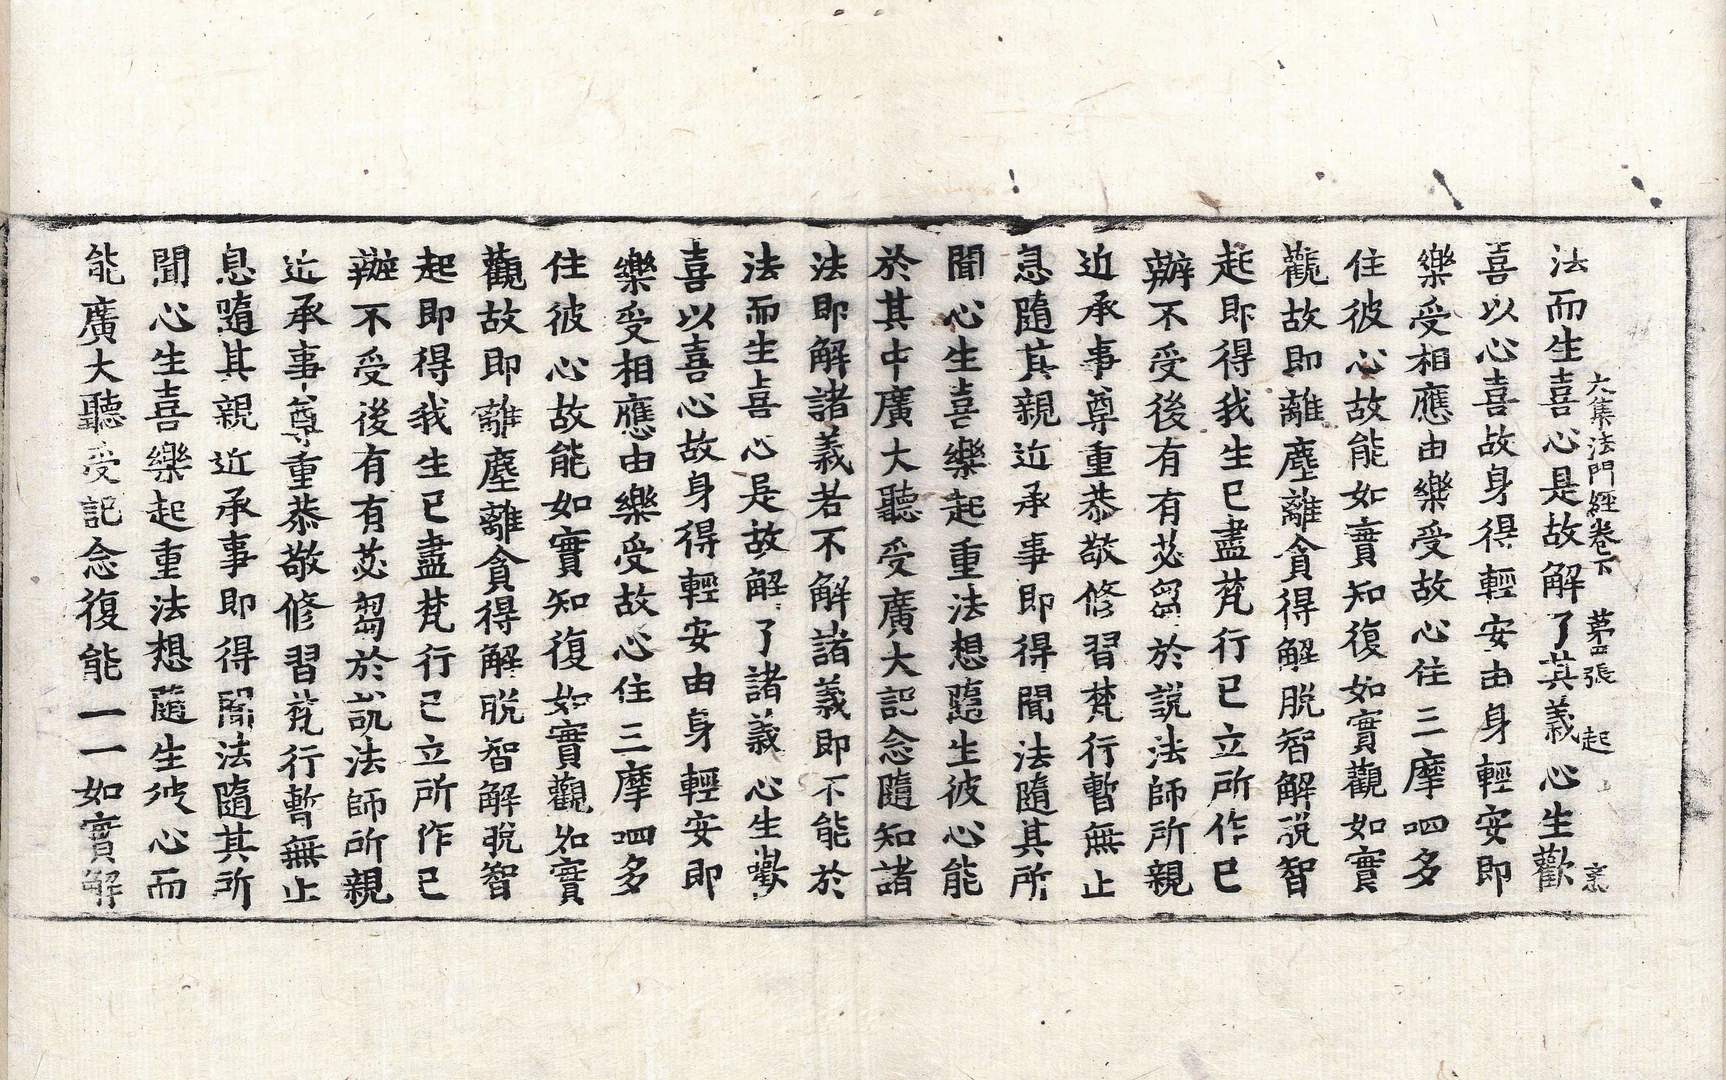 大集法門經卷下　第四張　起
法而生喜心是故解了其義心生歡
喜以心喜故身得輕安由身輕安即
樂受相應由樂受故心住三摩呬多
住彼心故能如實知復如實觀如實
觀故即離塵離貪得解脫智解脫智
起即得我生已盡梵行已立所作已
辦不受後有有苾芻於說法師所親
近承事尊重恭敬修習梵行暫無止
息隨其親近承事即得聞法隨其所
聞心生喜樂起重法想隨生彼心能
於其中廣大聽受廣大記念隨知諸
法即解諸義若不解諸義即不能於
法而生喜心是故解了諸義心生歡
喜以喜心故身得輕安由身輕安即
樂受相應由樂受故心住三摩呬多
住彼心故能如實知復如實觀如實
觀故即離塵離貪得解脫智解脫智
起即得我生已盡梵行已立所作已
辦不受後有有苾芻於說法師所親
近承事尊重恭敬修習梵行暫無止
息隨其親近承事即得聞法隨其所
聞心生喜樂起重法想隨生彼心而
能廣大聽受記念復能一一如實解